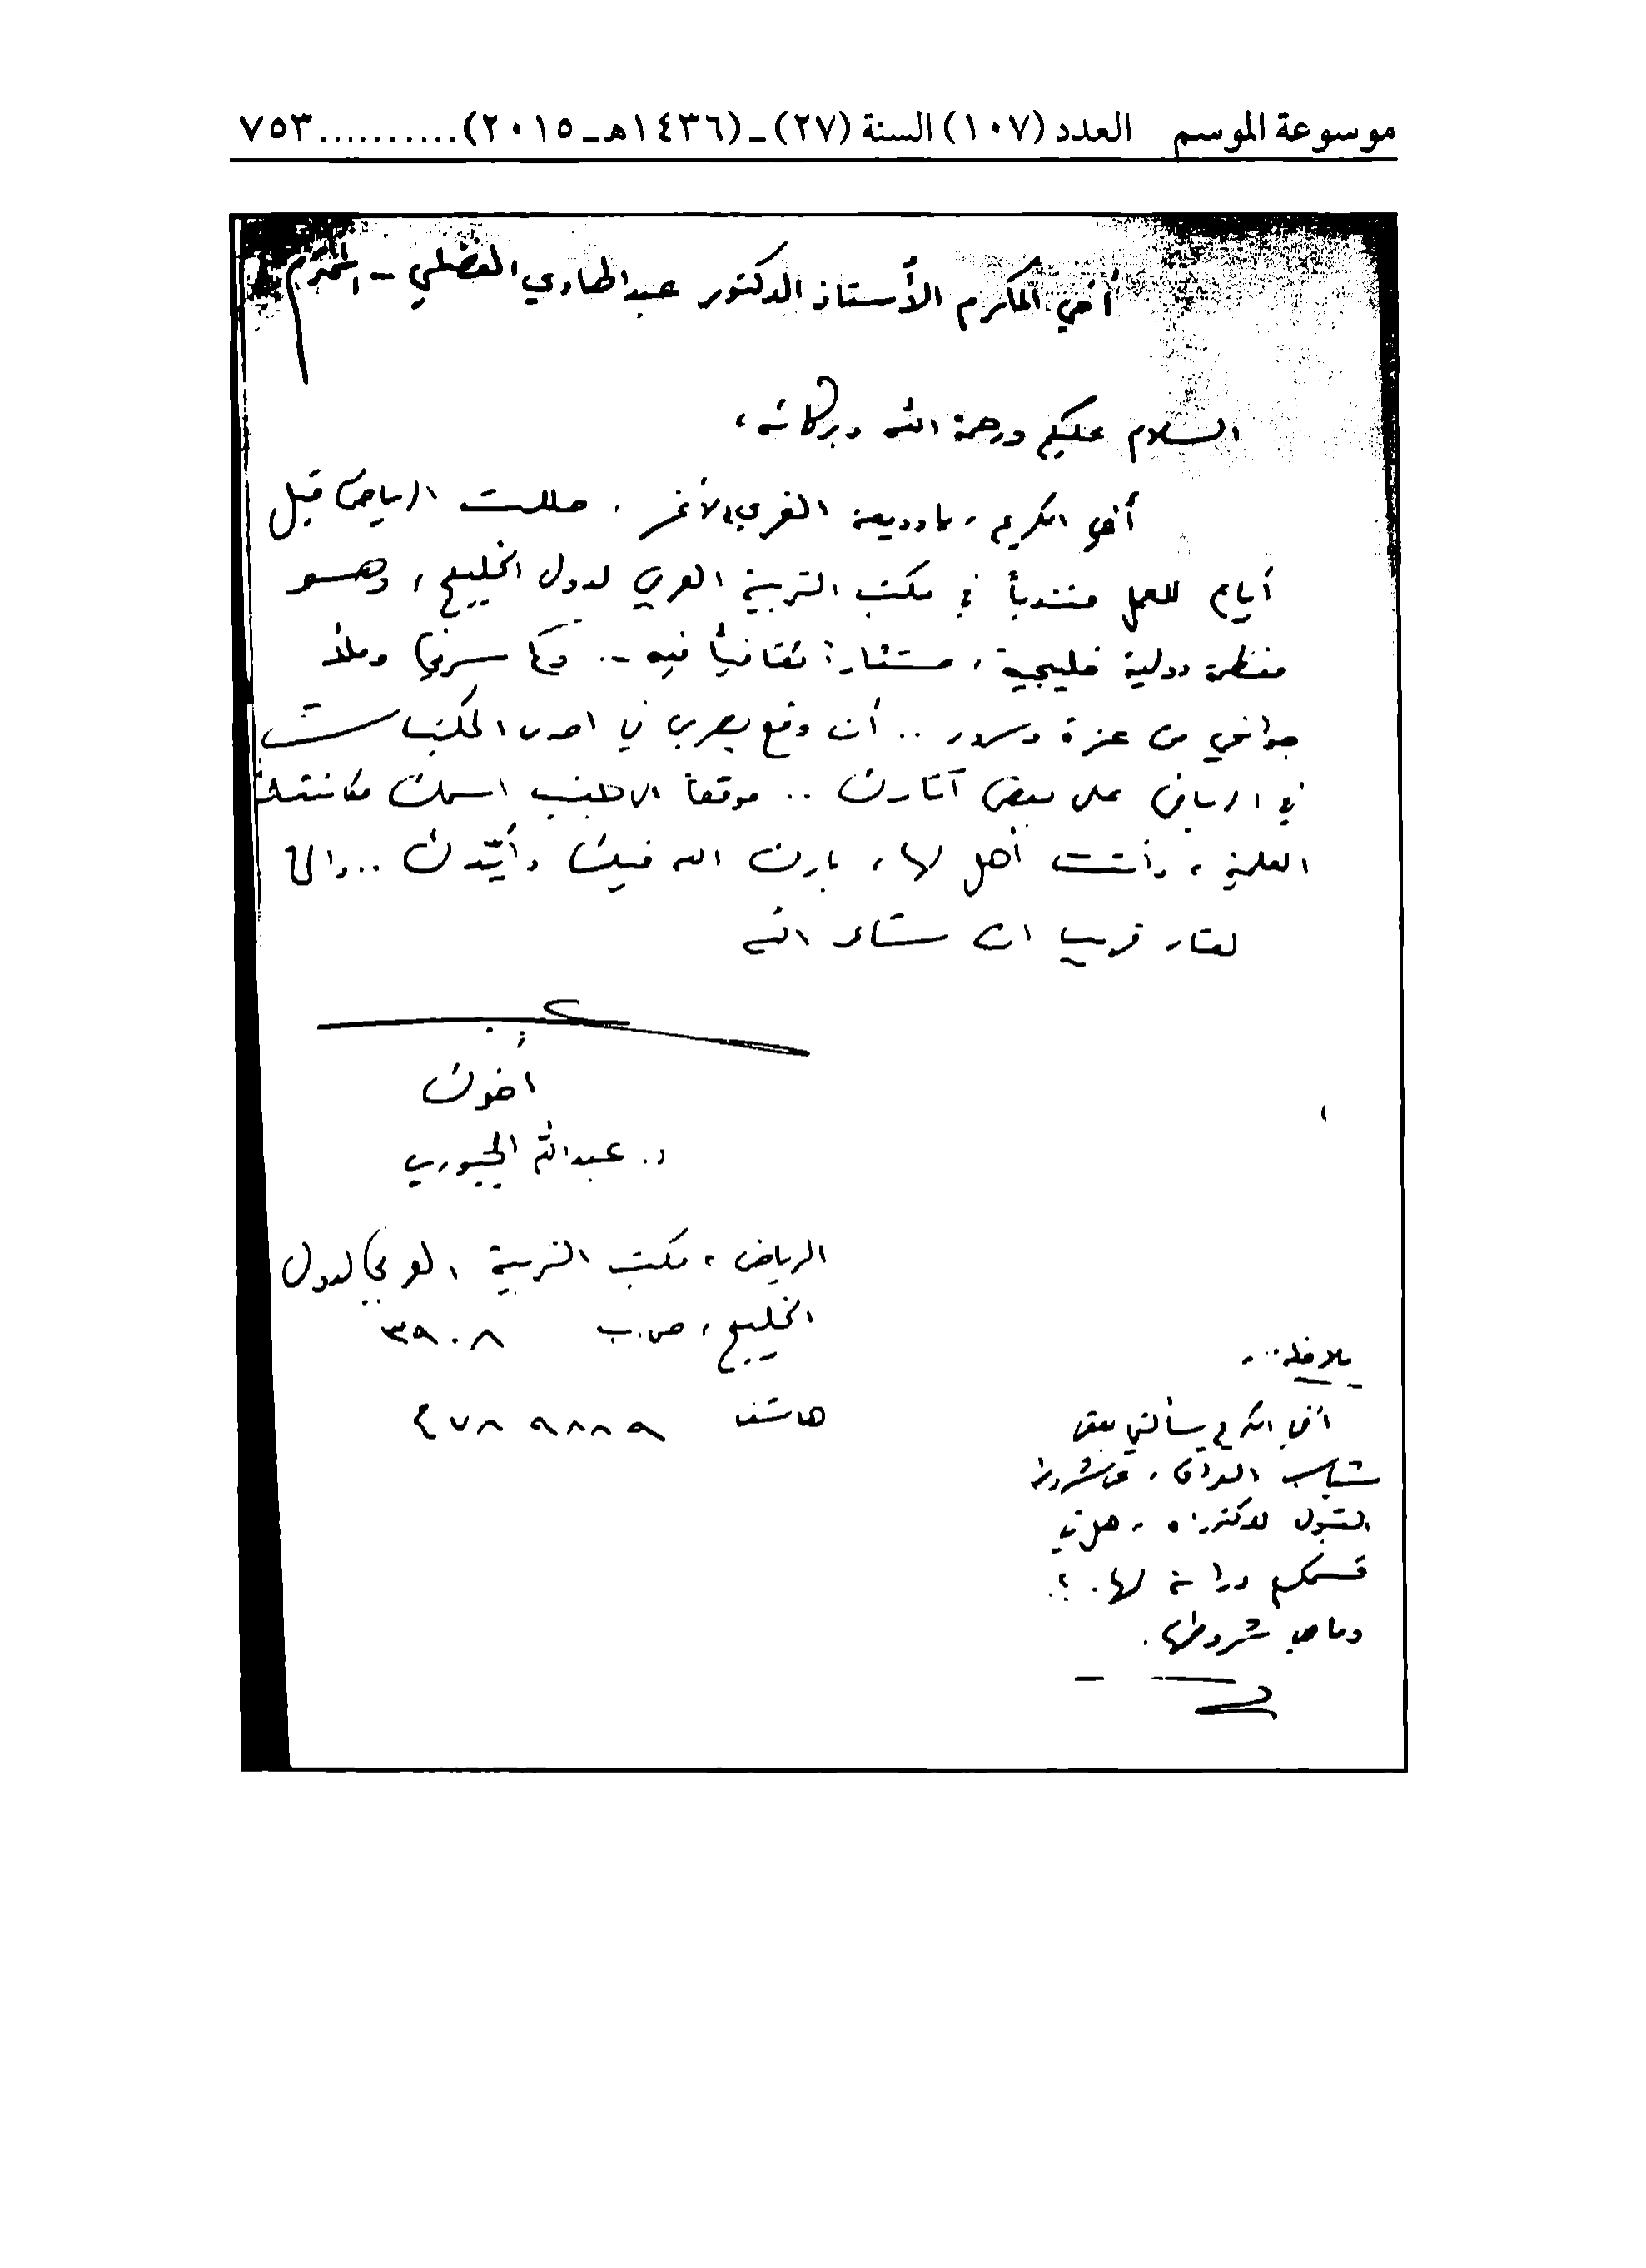 موسوعة الموسم العدد (١٠٧) السنة (٢٧) ـ (١٤٣٦هـ ـ ٢٠١٥)..........٧٥٣
أخي المكرم الأستاذ الدكتور عبدالهادي الفضلي - المحترم
السلام عليكم ورحمة الله وبركاته،
أخي الكريم، يا وديعة الغري الأغر، حللت الرياض قبل
أيام للعمل منتدباً في مكتب التربية العربي لدول الخليج، وهو
منظمة دولية خليجية، مستشاراً ثقافياً فيه .. وكما سرني وملأ
جوانحي من عزة وسرور .. أن وقع بصري في احدى المكتبات
في الرياض على بعض آثارك .. موقعاً اسمك مكانته
العلمية، وأنت أهل لها، بارك الله فيك وأيّدك .. والى
لقاء قريب ان شاء الله
أخوك
د. عبدالله الجبوري
الرياض، مكتب التربية العربي لدول
الخليج، ص.ب ٣٩٠٨
هاتف ٤٧٨٩٨٨٩
ملاحظة ..
أخي الكريم يسألني بعض
شباب العراق، عن شروط
القبول للدكتوراه، هل في
قسمكم دراسة لها.؟
وما هي شروطها.